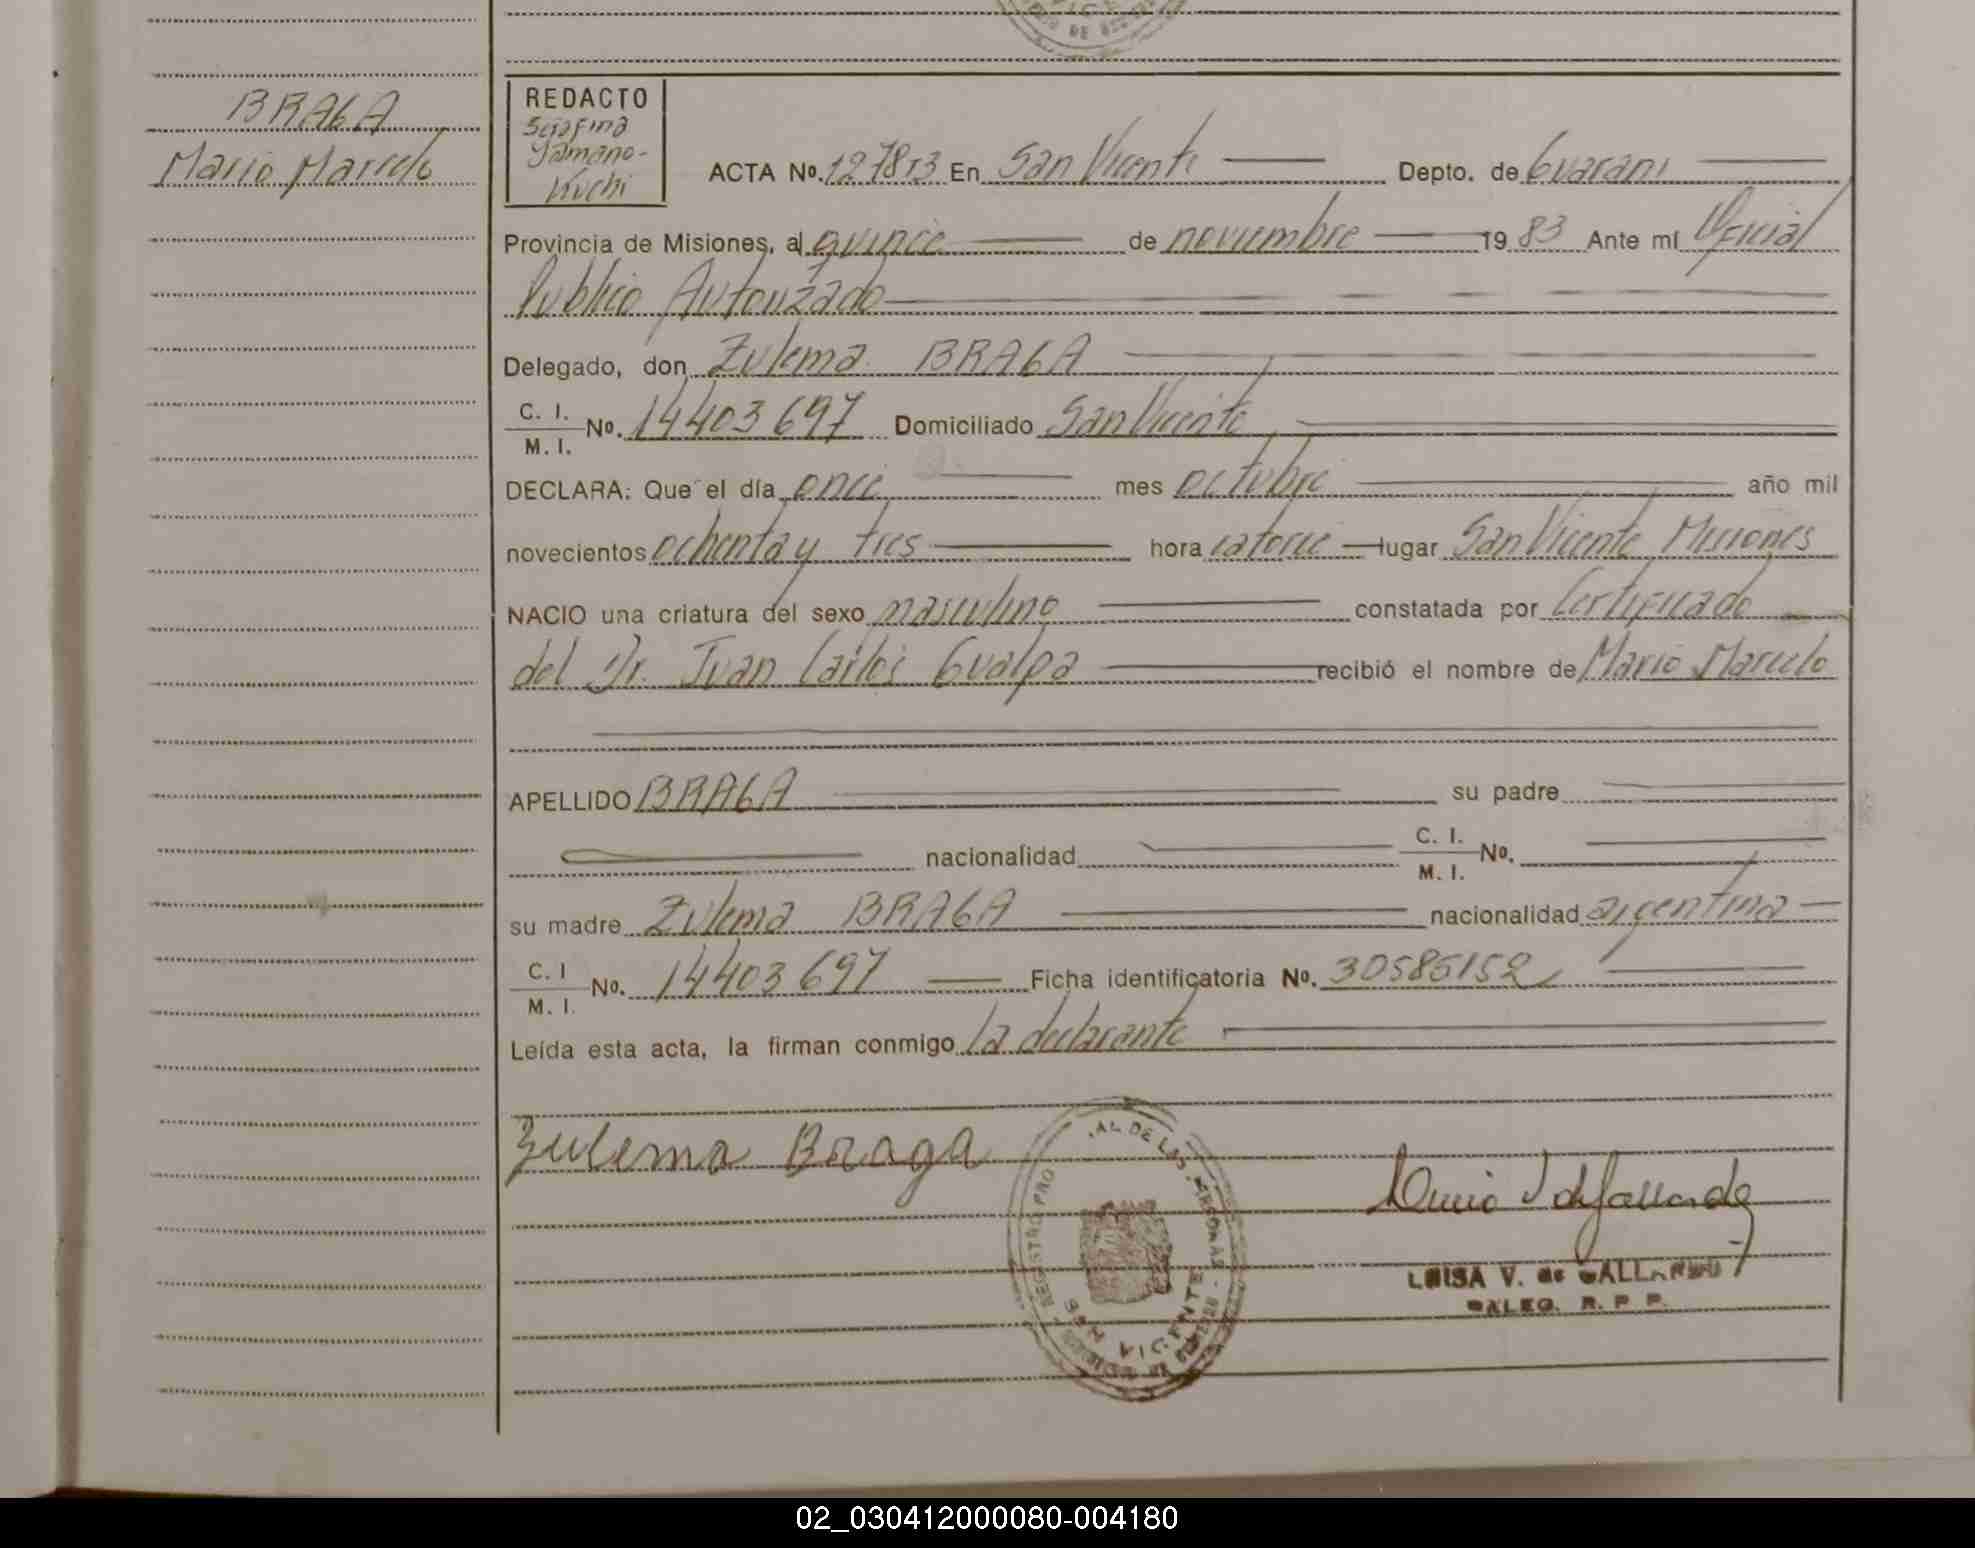 BRAGA
Mario Marcelo
REDACTO
Serafina
Yamano-
Kuchi
ACTA Nº. 127813 En San Vicente Depto. de Guarani
Provincia de Misiones, a quince de noviembre 19 83 Ante mí Oficial
Publico Autorizado
Delegado, don Zulema BRAGA
C. I.
M. I. Nº. 14403697 Domiciliado San Vicente
DECLARA: Que el día once mes octubre año mil
novecientos ochenta y tres hora catorce lugar San Vicente Misiones
NACIO una criatura del sexo masculino constatada por Certificado
del Dr. Juan Carlos Gualpa recibió el nombre de Mario Marcelo
APELLIDO BRAGA su padre
nacionalidad C. I.
M. I. Nº.
su madre Zulema BRAGA nacionalidad argentina
C. I
M. I. Nº. 14403697 Ficha identificatoria Nº. 30585152
Leída esta acta, la firman conmigo la declarante
Zulema Braga
LUISA V. de GALLARDO
R. P. P.
VICENTE
02_030412000080-004180